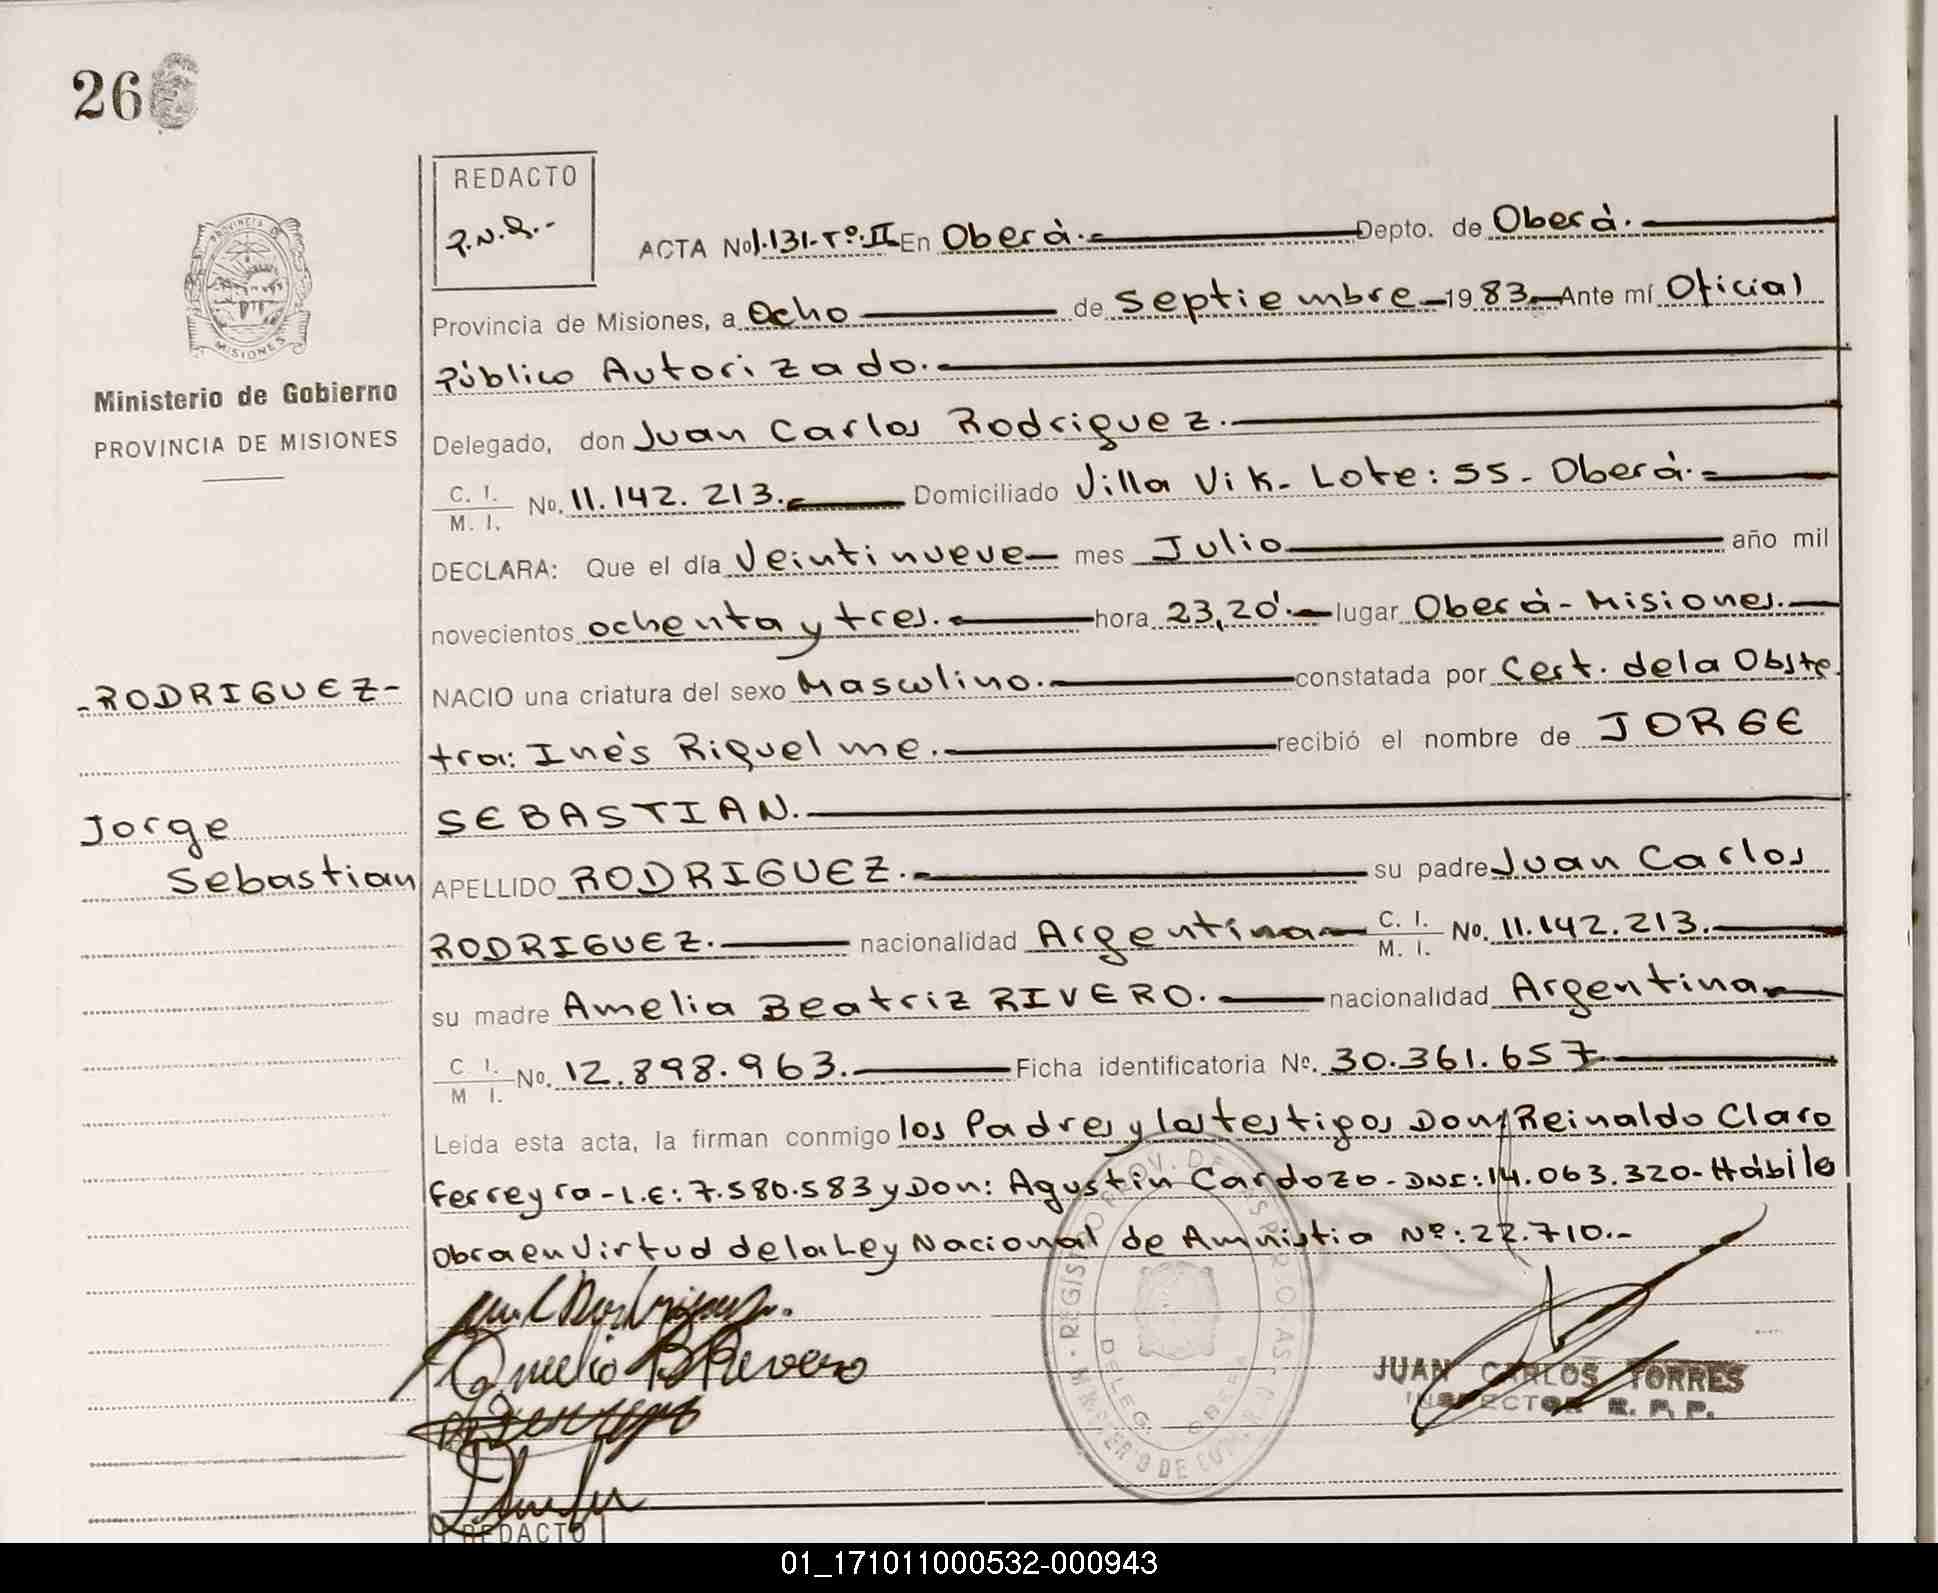 26
REDACTO
ACTA No 1.131-Tº.II En Oberá.- Depto. de Oberá.-
Provincia de Misiones, a Ocho de Septiembre 1983 Ante mí Oficial
Público Autorizado.-
Delegado, don Juan Carlos Rodriguez.-
C. I. M. I. No. 11.142.213.- Domiciliado Villa Vik- Lote: 55- Oberá.-
DECLARA: Que el día Veintinueve mes Julio año mil
novecientos ochenta y tres.- hora 23,20'.- lugar Oberá-Misiones.-
NACIO una criatura del sexo Masculino.- constatada por Cert. de la Obste
tra: Inés Riquelme.- recibió el nombre de JORGE
SEBASTIAN.-
APELLIDO RODRIGUEZ.- su padre Juan Carlos
RODRIGUEZ.- nacionalidad Argentina C. I. M. I. No. 11.142.213.-
su madre Amelia Beatriz RIVERO.- nacionalidad Argentina
C I. M I. No. 12.898.963.- Ficha identificatoria No. 30.361.657
Leida esta acta, la firman conmigo los Padres y los testigos Don Reinaldo Claro
Ferreyra-L.E:7.580.583 y Don: Agustín Cardozo-DNI:14.063.320-Hábilo
Obra en Virtud de la Ley Nacional de Amnistia Nº:22.710.-
Amelia B Rivero
JUAN CARLOS TORRES
INSPECTOR R. P. P.
REDACTO
PROVINCIA DE
MISIONES
Ministerio de Gobierno
PROVINCIA DE MISIONES
-RODRIGUEZ-
Jorge
Sebastian
01_171011000532-000943